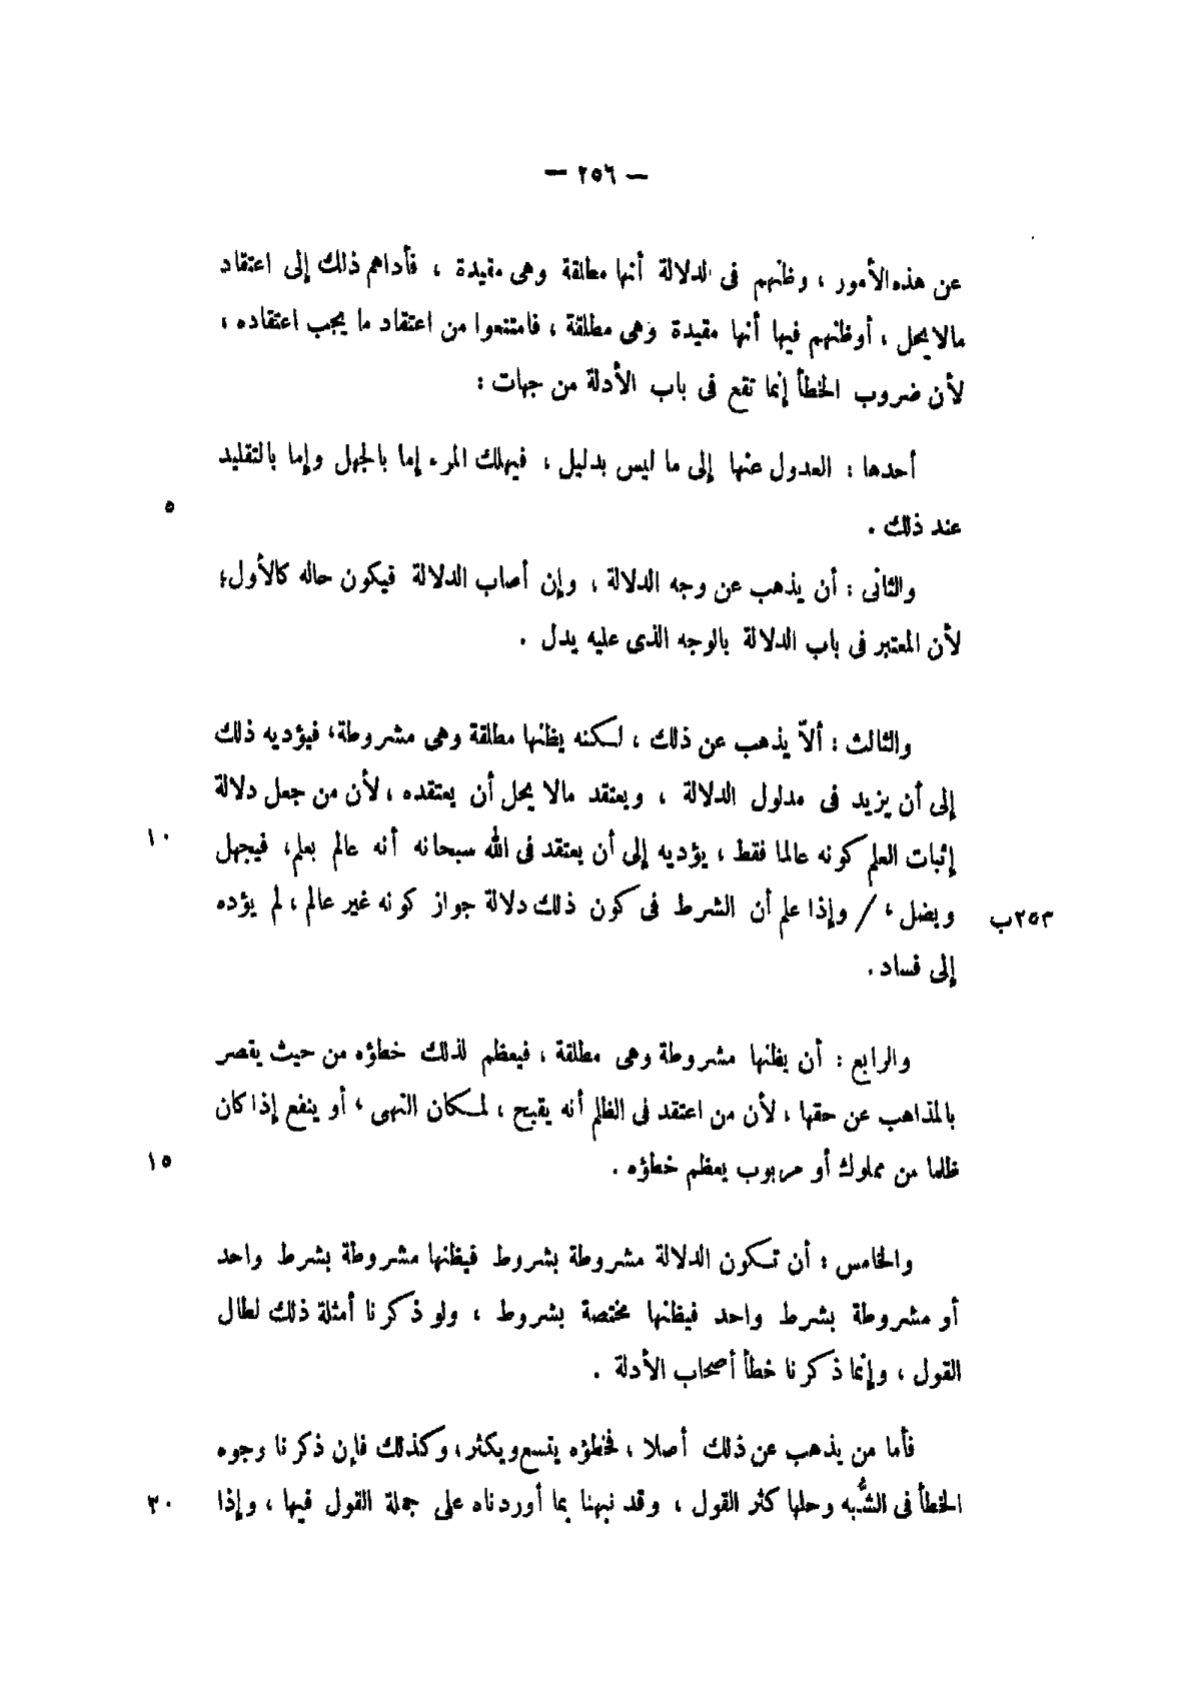 — ٢٥٦ —
عن هذه الأمور ، وظنهم فى الدلالة أنها مطلقة وهى مقيدة ، فأداهم ذلك إلى اعتقاد
مالا يحل ، أوظنهم فيها أنها مقيدة وهى مطلقة ، فامتنعوا من اعتقاد ما يجب اعتقاده ،
لأن ضروب الخطأ إنما تقع فى باب الأدلة من جهات :
أحدها : العدول عنها إلى ما ليس بدليل ، فيهلك المرء إما بالجهل وإما بالتقليد
عند ذلك .
٥
والثانى : أن يذهب عن وجه الدلالة ، وإن أصاب الدلالة فيكون حاله كالأول؛
لأن المعتبر فى باب الدلالة بالوجه الذى عليه يدل .
والثالث : ألاّ يذهب عن ذلك ، لكنه يظنها مطلقة وهى مشروطة، فيؤديه ذلك
إلى أن يزيد فى مدلول الدلالة ، ويعتقد مالا يحل أن يعتقده ، لأن من جعل دلالة
إثبات العلم كونه عالما فقط ، يؤديه إلى أن يعتقد فى الله سبحانه أنه عالم بعلم، فيجهل
١٠
ويضل ، / وإذا علم أن الشرط فى كون ذلك دلالة جواز كونه غير عالم ، لم يؤده
٢٥٣ب
إلى فساد .
والرابع : أن يظنها مشروطة وهى مطلقة ، فيعظم لذلك خطؤه من حيث يقصر
بالمذاهب عن حقها ، لأن من اعتقد فى الظلم أنه يقبح ، لمكان النهى ، أو ينفع إذا كان
ظلما من مملوك أو مربوب يعظم خطؤه .
١٥
والخامس : أن تكون الدلالة مشروطة بشروط فيظنها مشروطة بشرط واحد
أو مشروطة بشرط واحد فيظنها مختصة بشروط ، ولو ذكرنا أمثلة ذلك لطال
القول ، وإنما ذكرنا خطأ أصحاب الأدلة .
فأما من يذهب عن ذلك أصلا ، فخطؤه يتسع ويكثر، وكذلك فإن ذكرنا وجوه
الخطأ فى الشُّبه وحلها كثر القول ، وقد نبهنا بما أوردناه على جملة القول فيها ، وإذا
٢٠